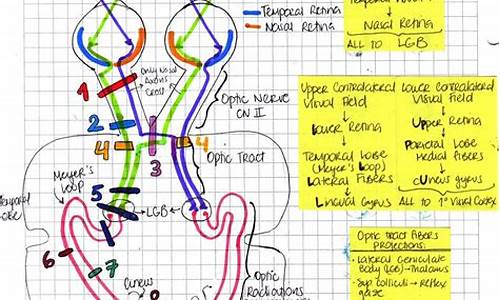 Temporal Retina
Nasal Retina
Nasal Retina
ALL TO LGB
1
Only Nasal
Axons
Cross
Optic Nerve
CN II
2
4
4
3
Optic Tract
Meyer's
Loop
Temporal
Lobe
5
LGB
6
7
Cuneus
8
5
Optic
Radiations
Upper Contralateral
Visual Field
Lower Retina
Temporal Lobe
(Meyer's Loop)
Lateral Fibers
Lingual Gyrus
Lower Contralateral
Visual Field
Upper Retina
Parietal Lobe
Medial Fibers
cUneus gyrus
ALL TO 1° Visual Cortex
Optic tract Fibers
Projections:
• Lateral Geniculate
Body (LGB) → Thalamus
• Sup. Colliculi → Reflex
gaze